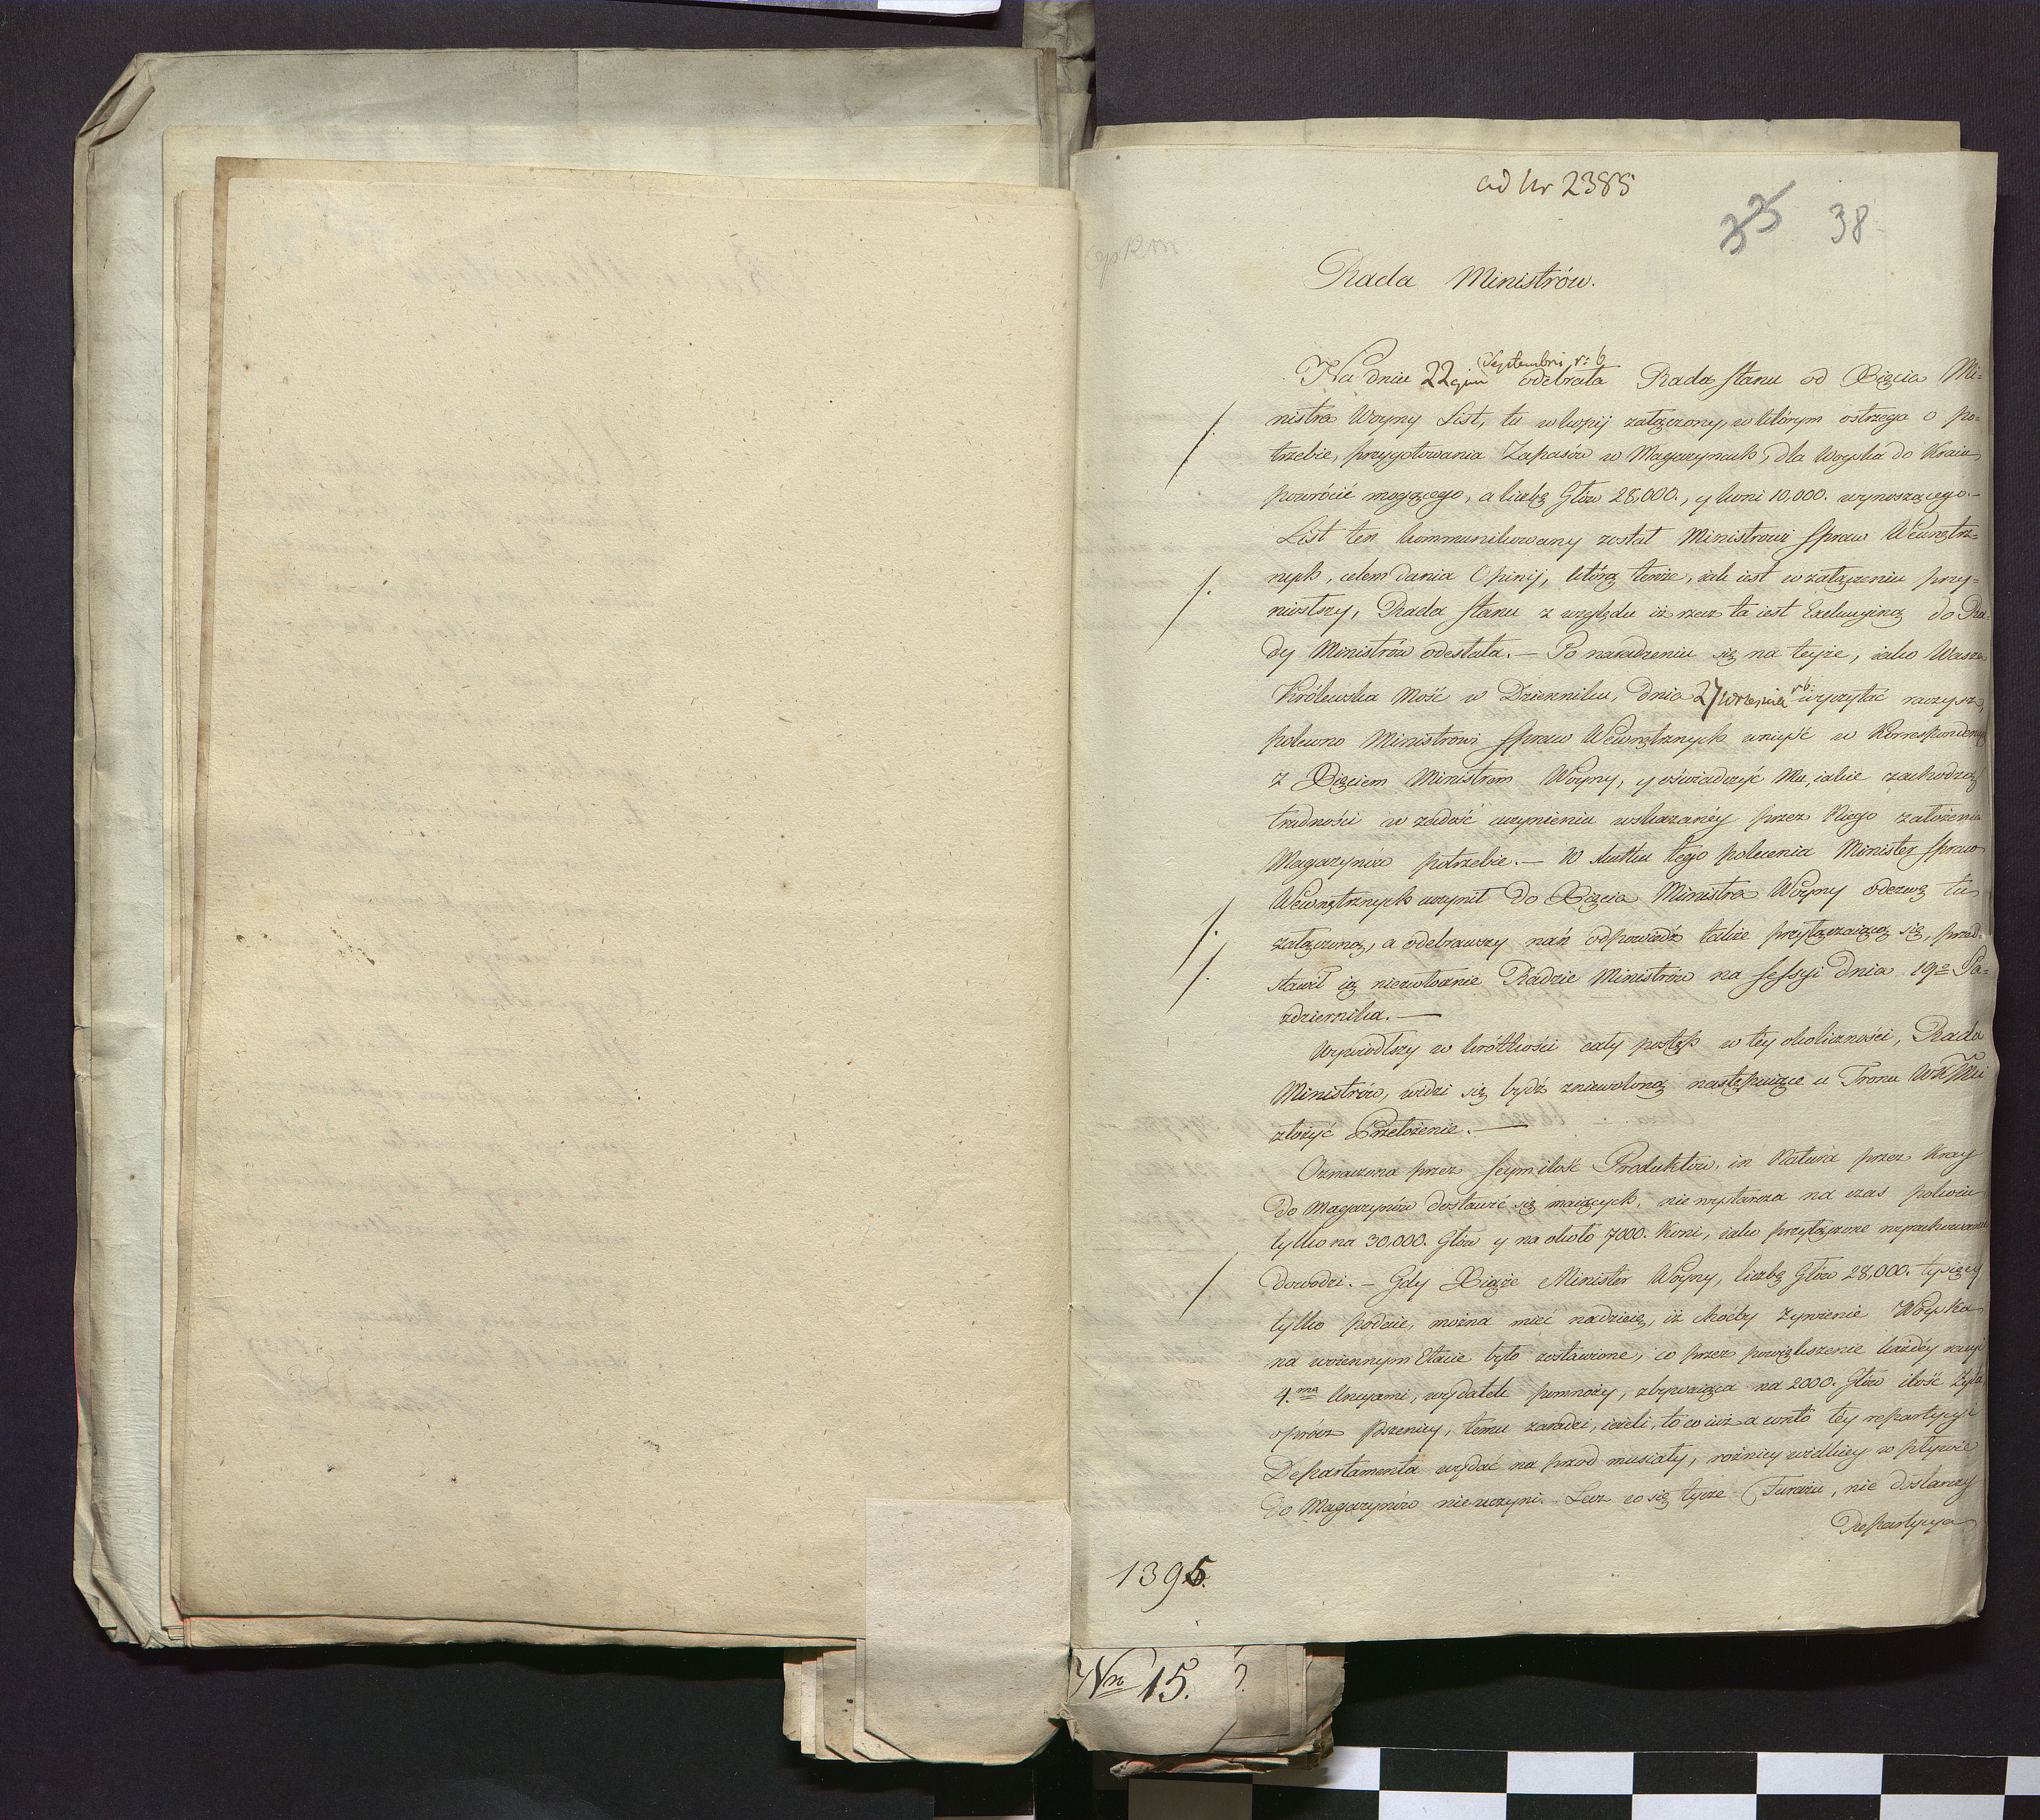 ad Nr 2385
35 38
Rada Ministrów.
Na dniu 22gim Septembri r: b odebrała Rada Stanu od Xięcia Mi=
nistra Woyny List, tu w kopij załączony, w którym ostrzega o po=
trzebie, przygotowania Zapasów w Magazynach, dla Woyska do Kraiu
powrócić mogącego, a liczbę Głów 28,000., y koni 10,000. wynoszącego.-
List ten kommunikowany został Ministrowi Spraw Wewnętrz=
nych, celem dania Opinij, którą tenże, iak iest w załączeniu przy=
niosłszy, Rada Stanu z względu iż rzecz ta iest Exekucyiną do Ra=
dy Ministrów odesłała.— Po naradzeniu się na teyże, iako Wasza
Królewska Mość w Dzienniku, dnia 27 września r b. wyczytać raczysz,
polecno Ministrowi Spraw Wewnętrznych wniyść w Korrespondencyą
z Xięciem Ministrem Woyny, y oświadczyć Mu, iakie zachodzą
trudności w zadość uczynieniu wskazanéy przez Niego założenia
Magazynów potrzebie.— W skutku tego polecenia Minister Spraw
Wewnętrznych uczynił do Xięcia Ministra Woyny odezwę tu
załączoną, a odebrawszy nań odpowiedź także przyłączaiącą się, przed=
stawił ią niezwłocznie Radzie Ministrów na Sessyi dnia 19º Pa=
zdziernika.—
Wywiodłszy w krótkości cały postęp w tey okoliczności, Rada
Ministrów, widzi się bydź zniewoloną następuiące u Tronu WKMci
złożyć Przełożenie.—
Oznaczona przez Seym ilość Produktów, in Natura przez Kray
do Magazynów dostawić się maiących, nie wystarcza na czas pokoiu
tylko na 30,000. Głów y na około 7000. Koni, iako przyłączone wyrachowanie
dowodzi.— Gdy Xiąże Minister Woyny, liczbę Głów 28,000. tysięcy
tylko podaie, można mieć nadzieię, iż choćby Żywienie Woyska
na woiennym Etacie było zostawione, co przez powiększenie każdéy racyi
4.ma Uncyami, wydatek pomnoży, zbywaiąca na 2000. Głów ilość Żyta
oprócz Pszenicy, temu zaradzi, ieżeli, to co iuż a conto téy repartycyi
Departamenta wydać na przod musiały, rożnicy wielkiey w pływie
do Magazynów nieuczyni. Lecz co się tycze Furażu, nie dostarczy
Repartycya
1395.
Nro 15.